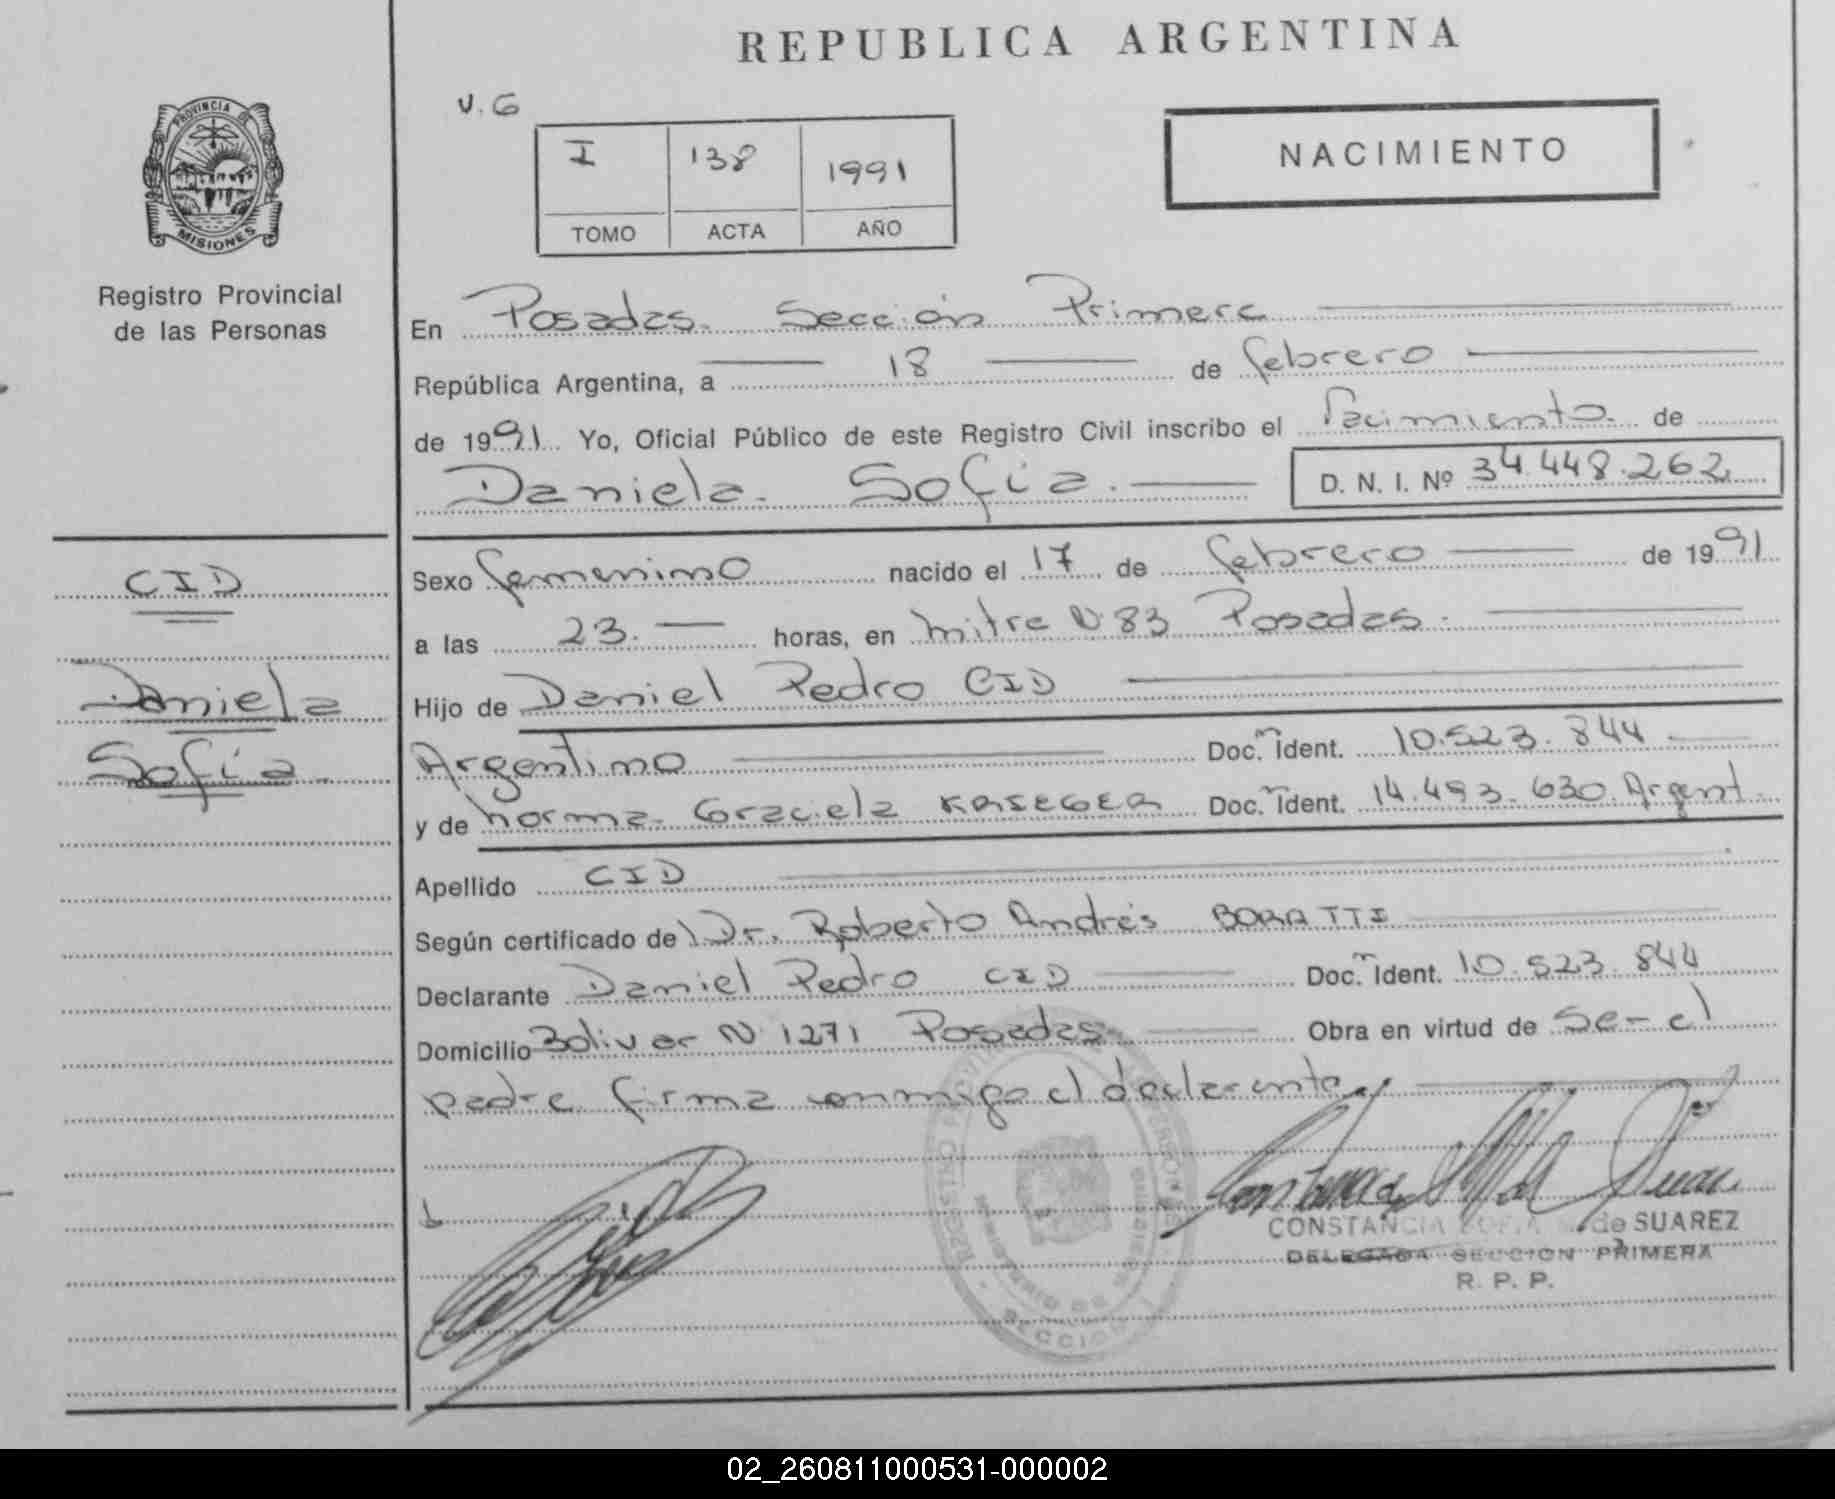 REPUBLICA ARGENTINA
V. G
PROVINCIA DE
MISIONES
I 138 1991
TOMO ACTA AÑO
NACIMIENTO
Registro Provincial
de las Personas
En Posadas. Sección Primera
República Argentina, a 18 de febrero
de 1991 Yo, Oficial Público de este Registro Civil inscribo el Nacimiento de
Daniela Sofía. D. N. I. Nº 34.448.262
CID
Daniela
Sofía.
Sexo femenino nacido el 17 de febrero de 1991
a las 23. horas, en Mitre N 83 Posadas.
Hijo de Daniel Pedro CID
Argentino Doc. Ident. 10.523.844
y de Norma Graciela Doc. Ident. 14.493.630 Argent.
Apellido CID
Según certificado del Dr. Roberto Andrés BORATTI
Declarante Daniel Pedro CID Doc. Ident. 10.523.844
Domicilio Bolivar N 1271 Posadas. Obra en virtud de Se- el
padre firma conmigo el declarante
REGISTRO
MINISTERIO DE
SECCION
CONSTANCIA SOFIA de SUAREZ
DELEGADA SECCION PRIMERA
R. P. P.
02_260811000531-000002